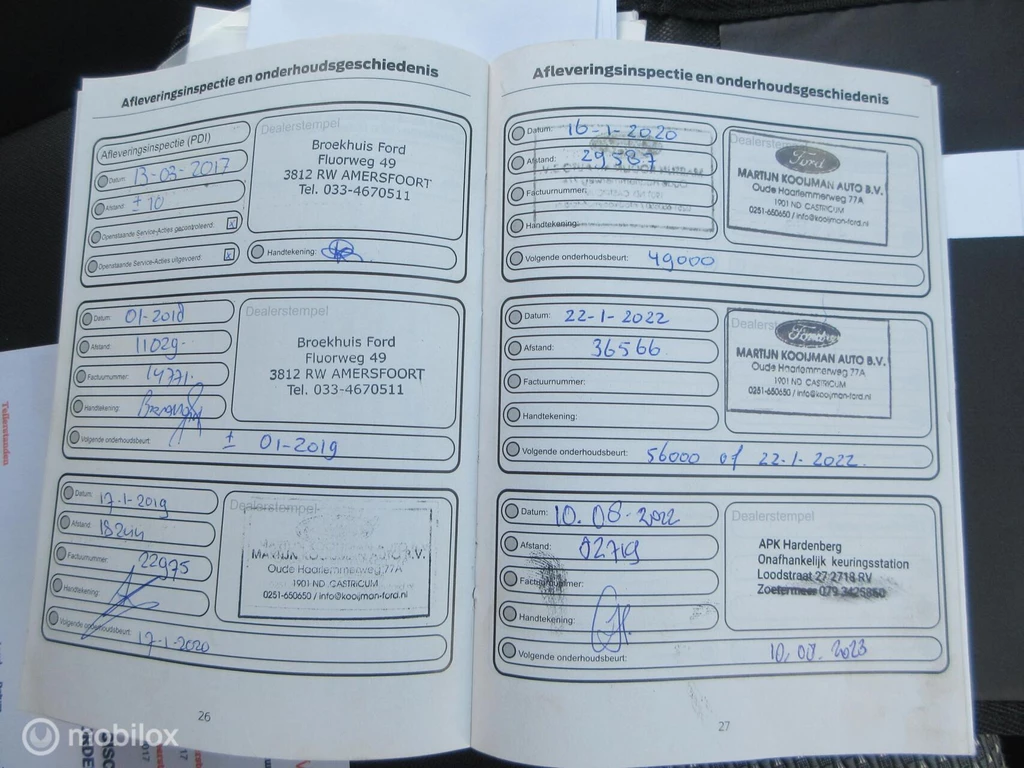 Afleveringsinspectie en onderhoudsgeschiedenis
Afleveringsinspectie (PDI)
Datum: 13-03-2017
Afstand: ± 10
Openstaande Service-Acties gecontroleerd: x
Openstaande Service-Acties uitgevoerd: x
Dealerstempel
Broekhuis Ford
Fluorweg 49
3812 RW AMERSFOORT
Tel. 033-4670511
Handtekening:
Datum: 01-2018
Afstand: 11029.
Factuurnummer: 14771.
Handtekening:
Dealerstempel
Broekhuis Ford
Fluorweg 49
3812 RW AMERSFOORT
Tel. 033-4670511
Volgende onderhoudsbeurt: ± 01-2019
Datum: 17-1-2019
Afstand:
Factuurnummer: 22975
Handtekening:
Dealerstempel
MARTIJN KOOIJMAN AUTO B.V.
Oude Haarlemmerweg 77A
1901 ND CASTRICUM
0251-650650 / info@kooijman-ford.nl
Volgende onderhoudsbeurt: 17-1-2020
26
Afleveringsinspectie en onderhoudsgeschiedenis
Datum: 16-1-2020
Afstand: 29587
Factuurnummer:
Handtekening:
Dealerstempel
Ford
MARTIJN KOOIJMAN AUTO B.V.
Oude Haarlemmerweg 77A
1901 ND CASTRICUM
0251-650650 / info@kooijman-ford.nl
Volgende onderhoudsbeurt: 49000
Datum: 22-1-2022
Afstand: 36566
Factuurnummer:
Handtekening:
Dealerstempel
Ford
MARTIJN KOOIJMAN AUTO B.V.
Oude Haarlemmerweg 77A
1901 ND CASTRICUM
0251-650650 / info@kooijman-ford.nl
Volgende onderhoudsbeurt: 56000 of 22-1-2022.
Datum: 10.08-2022
Afstand: 82719
Factuurnummer:
Handtekening:
Dealerstempel
APK Hardenberg
Onafhankelijk keuringsstation
Loodstraat 27 2718 RV
Zoetermeer 079 3425850
Volgende onderhoudsbeurt: 10.08.2023
27
Tellerstanden
mobilox